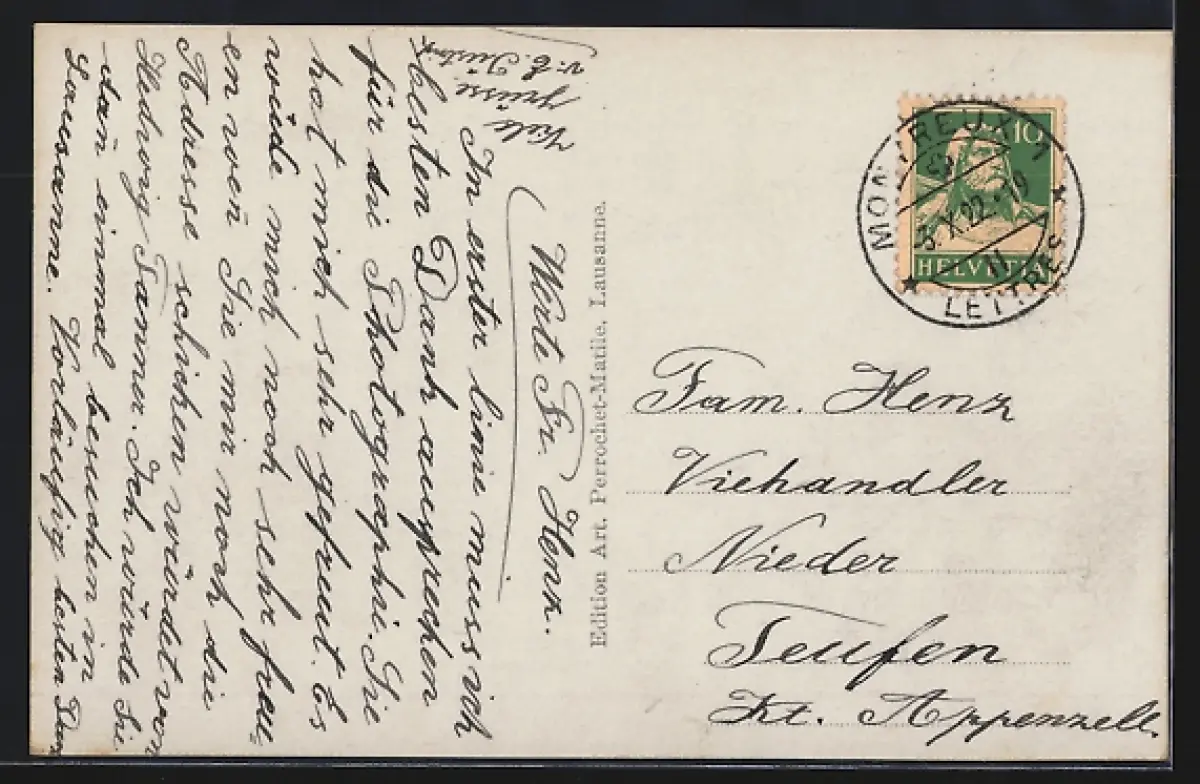 Werte Fr. Henz.
In erster linie muss ich
besten Dank aussprechen
für die Photographie. Sie
hat mich sehr gefreut. Es
würde mich noch sehr freu-
en wen̄ Sie mir noch die
Adresse schicken würdet von
Hedwig Tanner. Ich würde Sie
dan̄ einmal besuchen in
Lausanne. Vorläufig besten Dank
Viele
Grüsse
v. E.
Edition Art. Perrochet-Matile, Lausanne.
10
HELVETIA
MONTREUX 1
3.X.22.19
11
LETTRES
Fam. Henz
Viehandler
Nieder
Teufen
Kt. Appenzell.